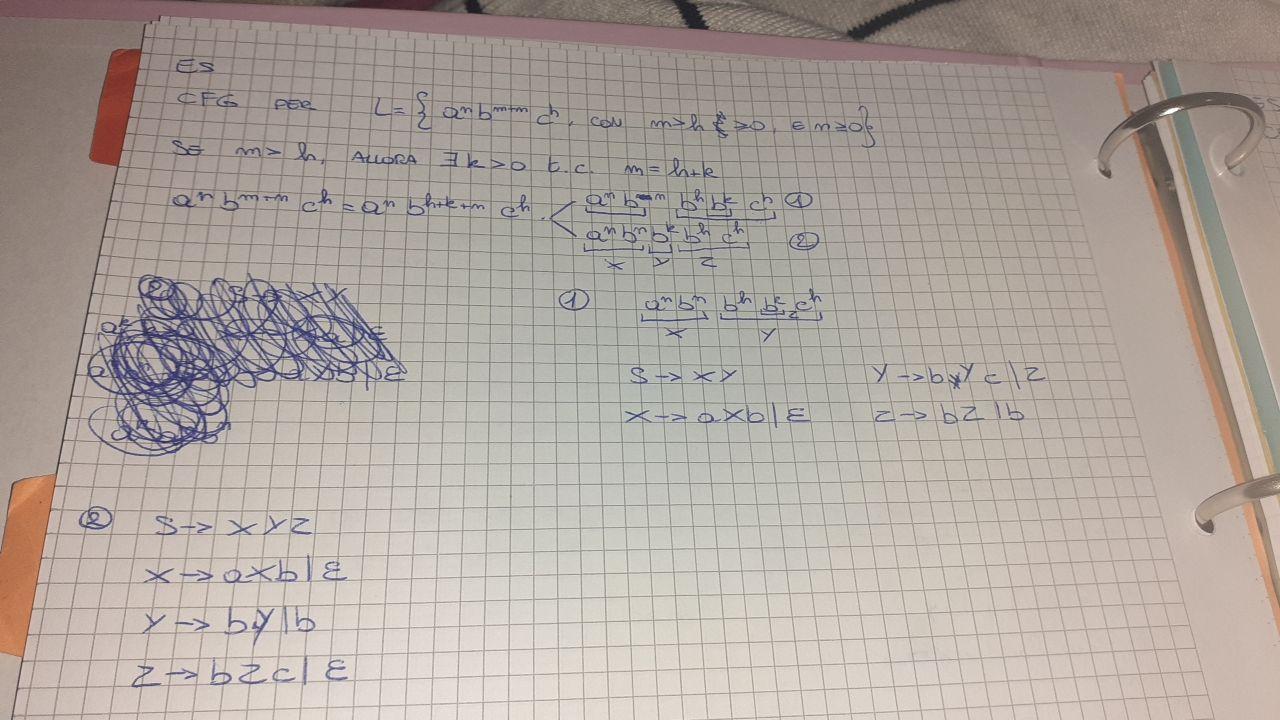 ES
CFG PER L = { aⁿ b^{m+n} c^h, CON m>h ≥0, E n≥0}
SE m> h, ALLORA ∃ k>0 t.c. m = h+k
aⁿ b^{m+n} c^h = aⁿ b^{h+k+n} c^h < aⁿ bⁿ b^h b^k c^h ①
aⁿ bⁿ b^k b^h c^h ②
X Y Z
① aⁿ bⁿ b^h b^k c^h
Z
X Y
S → XY Y → bYc | Z
X → aXb | ε Z → bZ | b
② S → XYZ
X → aXb | ε
Y → bY | b
Z → bZc | ε